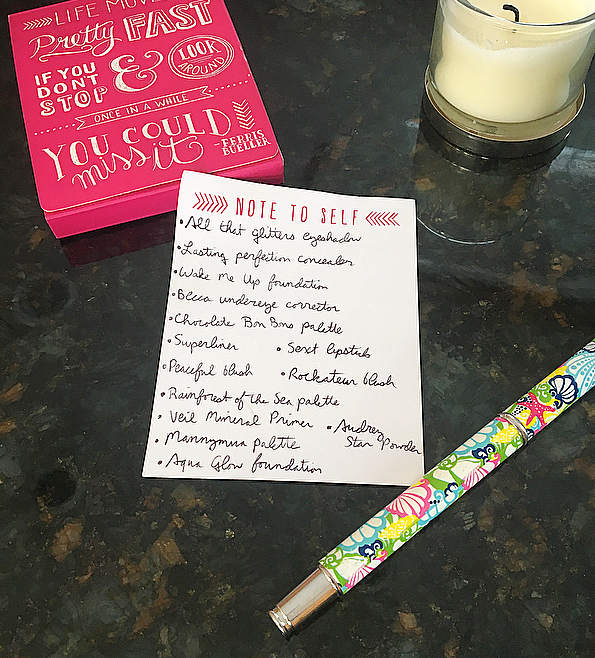 LIFE MOVES
Pretty FAST
IF YOU
DON'T
STOP
&
LOOK
AROUND
ONCE IN A WHILE
YOU COULD
miss it
-FERRIS
BUELLER
NOTE TO SELF
• All that glitters eyeshadow
• Lasting perfection concealer
• Wake Me Up foundation
• Becca undereye corrector
• Chocolate Bon Bons palette
• Superliner • Sexct lipsticks
• Peaceful blush • Rockateur blush
• Rainforest of the Sea palette
• Veil Mineral Primer • Audrey
• Mannymua palette Star Powder
• Aqua Glow foundation